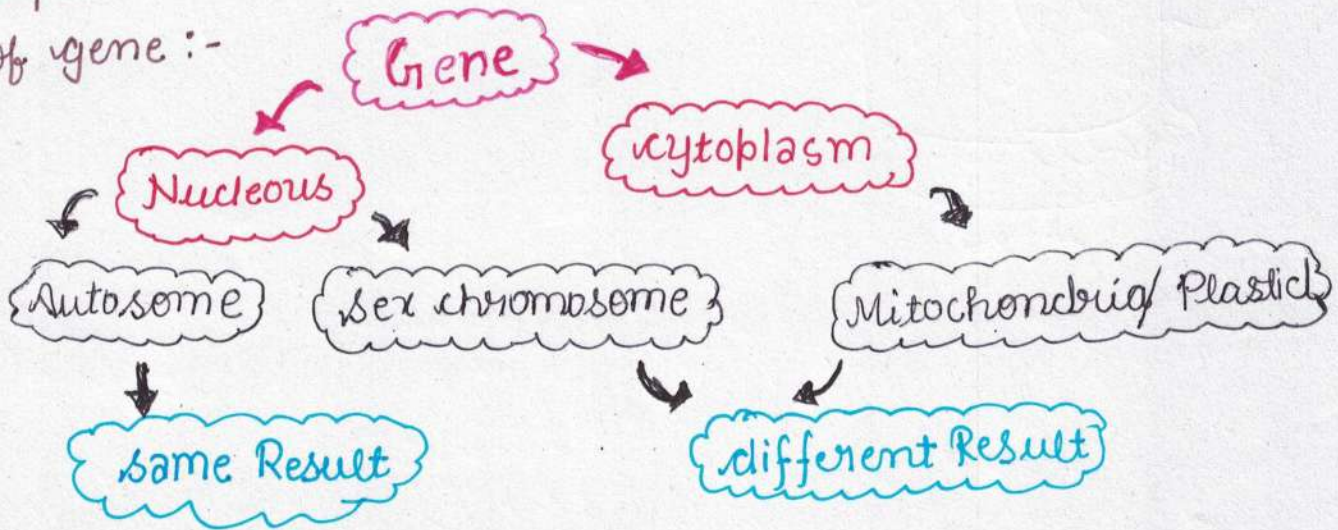 of gene :-
Gene
cytoplasm
Nucleous
Autosome
sex chromosome
Mitochondria/ Plastid
same Result
different Result